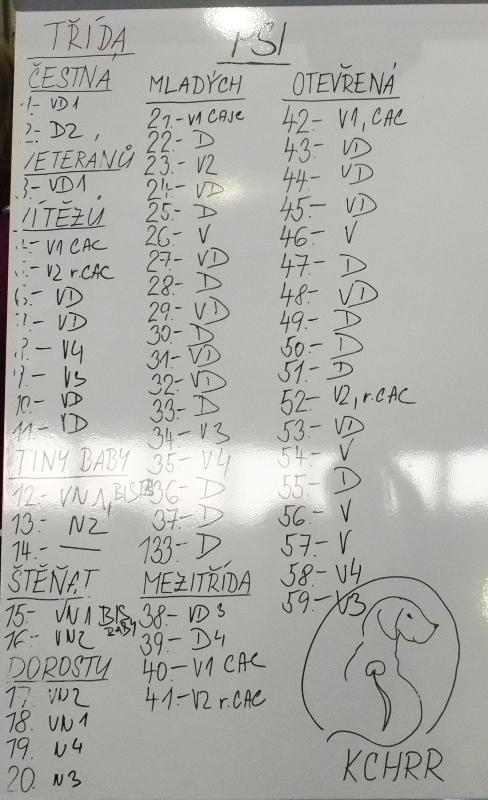 TŘÍDA
PSI
ČESTNÁ
1.- VD1
2.- D2
VETERANŮ
3.- VD1
VÍTĚZŮ
4.- V1 CAC
5.- V2 r.CAC
6.- VD
7.- VD
8.- V4
9.- V3
10.- VD
11.- VD
TINY BABY
12.- VN1, BIS TB
13.- N2
14.- —
ŠTĚŇAT
15.- VN1 BIS BABY
16.- VN2
DOROSTU
17. VN2
18. VN1
19. N4
20. N3
MLADÝCH
21.- V1 CAJC
22.- D
23.- V2
24.- VD
25.- D
26.- V
27.- VD
28.- D
29.- VD
30.- D
31.- VD
32.- VD
33.- D
34.- V3
35.- V4
36.- D
37.- D
133.- D
MEZITŘÍDA
38.- VD3
39.- D4
40.- V1 CAC
41.- V2 r.CAC
OTEVŘENÁ
42.- V1, CAC
43.- VD
44.- VD
45.- VD
46.- V
47.- D
48.- VD
49.- D
50.- D
51.- D
52.- V2, r.CAC
53.- VD
54.- V
55.- D
56.- V
57.- V
58.- V4
59.- V3
KCHRR